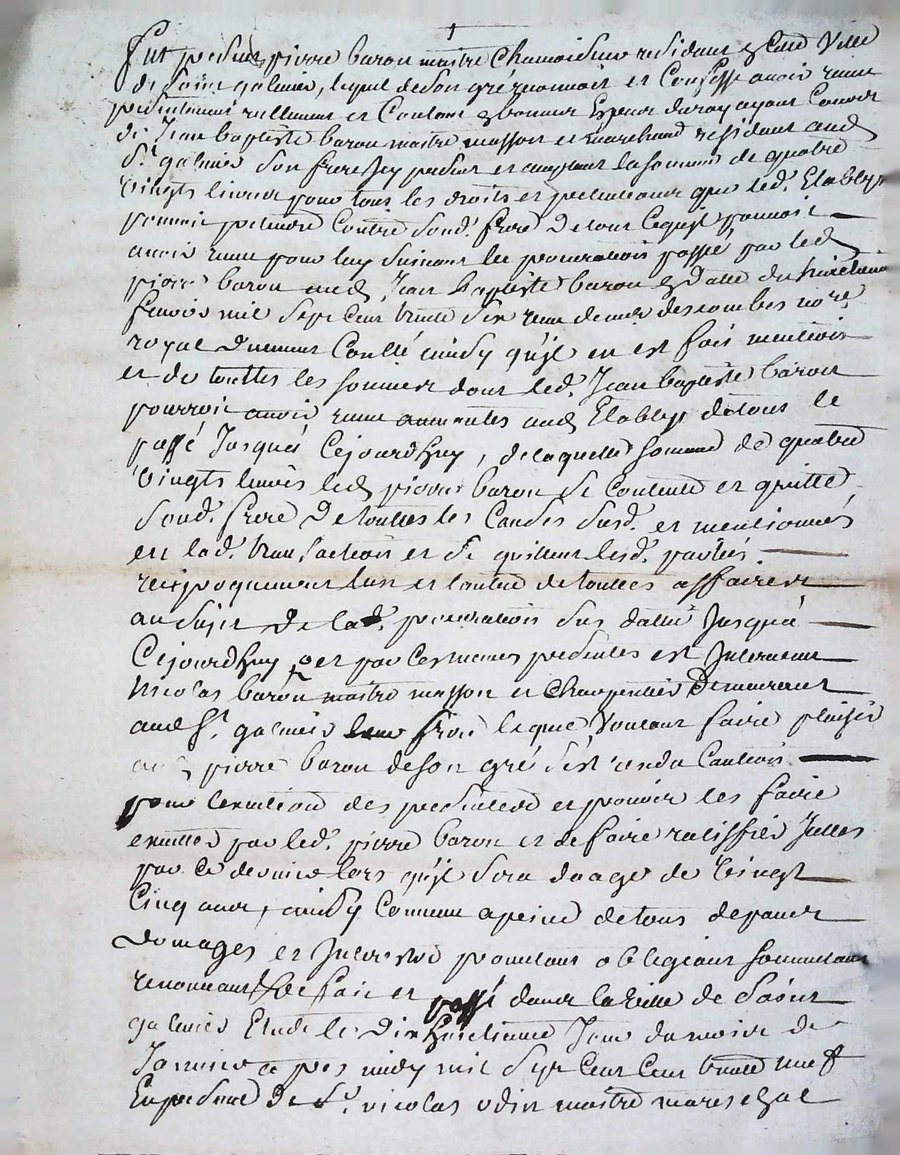 Fut present pierre baron maitre Chamoiseur residant en cette Ville
de saint galmier, lequel de son gré reconnoit et Confesse avoir receu
presentement reellement et Contant en bonnes Especes du roy ayant Cours
de Jean baptiste baron maitre masson et marchand residant aud
St galmier son frere Icy present et acceptant la somme de quatre
vingts livres pour tous les droits et pretentions que led. Etablys
pouvoit pretendre Contre sond. frere De tout Ce qu'jl pouvoit
avoir receu pour luy suivant la procuration passé par led
pierre baron aud. Jean baptiste baron en Datte du
fevrier mil sept cent trente six receue de me descombes no.re
royal Duement Contlé ainsy qu'jl en est fait mention
et de touttes les sommes dont led. Jean baptiste baron
pourroit avoir receu aud Etablys de tout le
passé Jusqua Cejourdhuy, de laquelle somme de quatre
vingts livres led pierre baron se Contente et quitte
sond. frere De touttes les Causes susd. et mentionnés
en lad. transaction et se quittent lesd. parties
reciproquement l'un et l'autre de touttes affaires
au sujet De lad. procuration sus datté Jusqua
Cejourdhuy et par ces memes presentes est Intervenu
Nicolas baron maitre masson et Charpentier Demeurant
aud St galmier leur frere lequel voulant faire plaisir
aud pierre baron de son gré s'est rendu Caution
pour l'exécution des presentes et pouvoir les faire
executer par led. pierre baron et de faire ratiffier Icelles
par ce dernier lors qu'jl sera en age de vingt
Cinq ans, ainsy Convenu a peine de tous depans
Domages et Interests promettant obligeant soumettant
renonceant &c fait et passé dans la ville de saint
galmier Etude le Dix huictieme Jour du mois de
Janvier apres midy mil sept cent cent trente neuf
En presence De sr. nicolas odin maitre mareschal